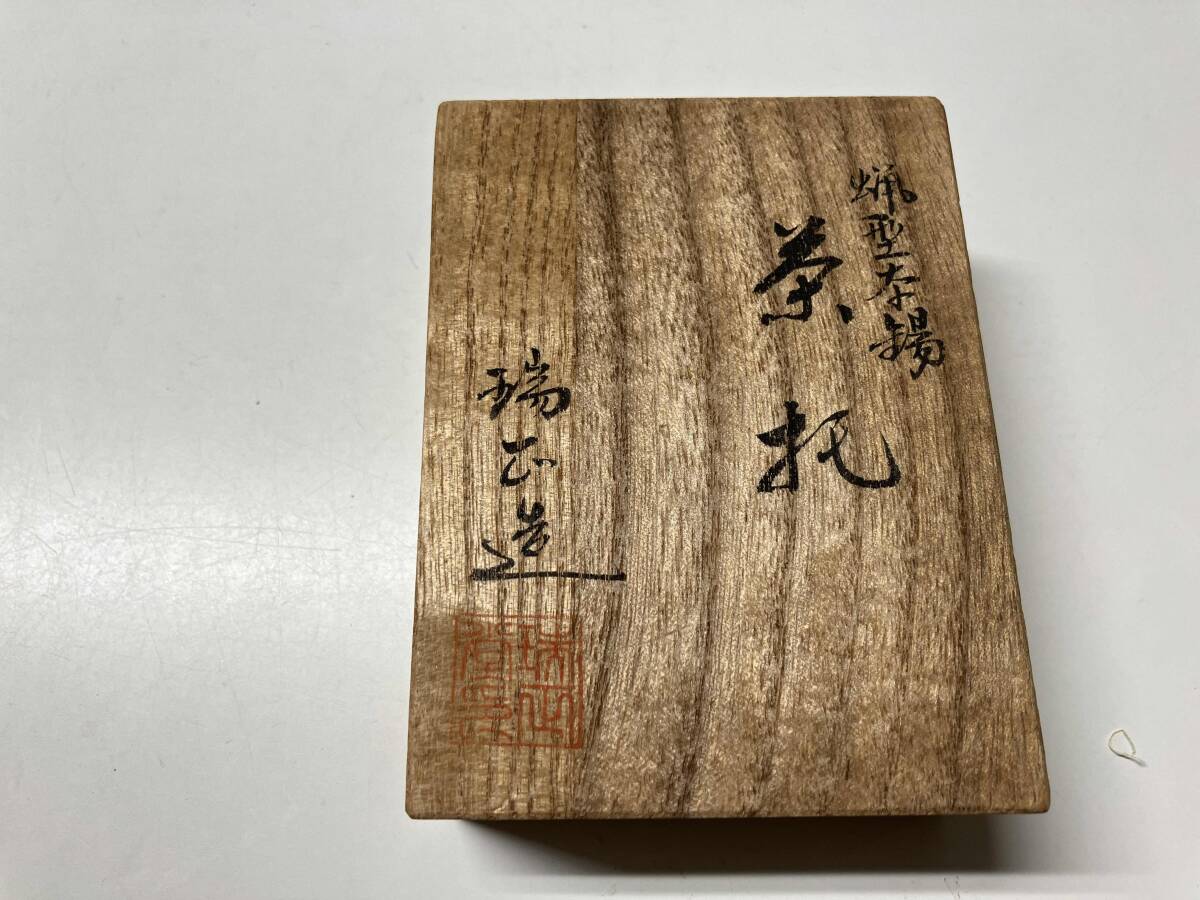 蝋型本錫
茶托
瑞正造